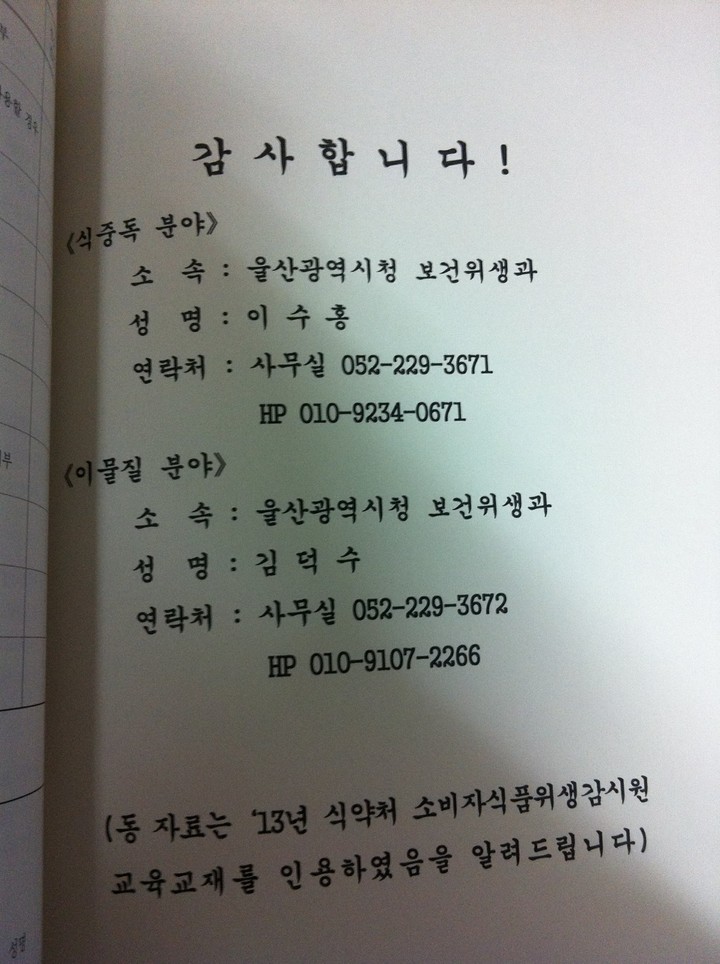 감사합니다!
《식중독 분야》
소 속 : 울산광역시청 보건위생과
성 명 : 이 수 홍
연락처 : 사무실 052-229-3671
HP 010-9234-0671
《이물질 분야》
소 속 : 울산광역시청 보건위생과
성 명 : 김 덕 수
연락처 : 사무실 052-229-3672
HP 010-9107-2266
(동 자료는 '13년 식약처 소비자식품위생감시원
교육교재를 인용하였음을 알려드립니다)